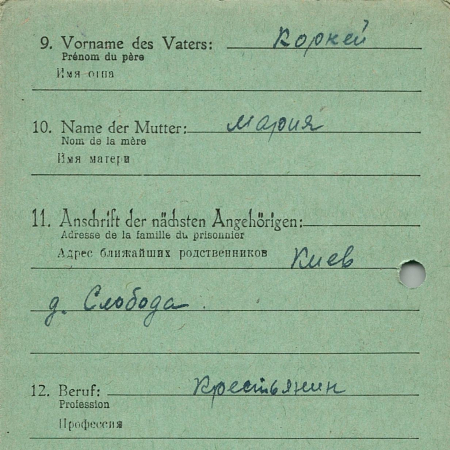 9. Vorname des Vaters: Корней
Prénom du père
Имя отца
10. Name der Mutter: Мария
Nom de la mère
Имя матери
11. Anschrift der nächsten Angehörigen:
Adresse de la famille du prisonnier
Адрес ближайших родственников Киев
д. Слобода
12. Beruf: Крестьянин
Profession
Профессия